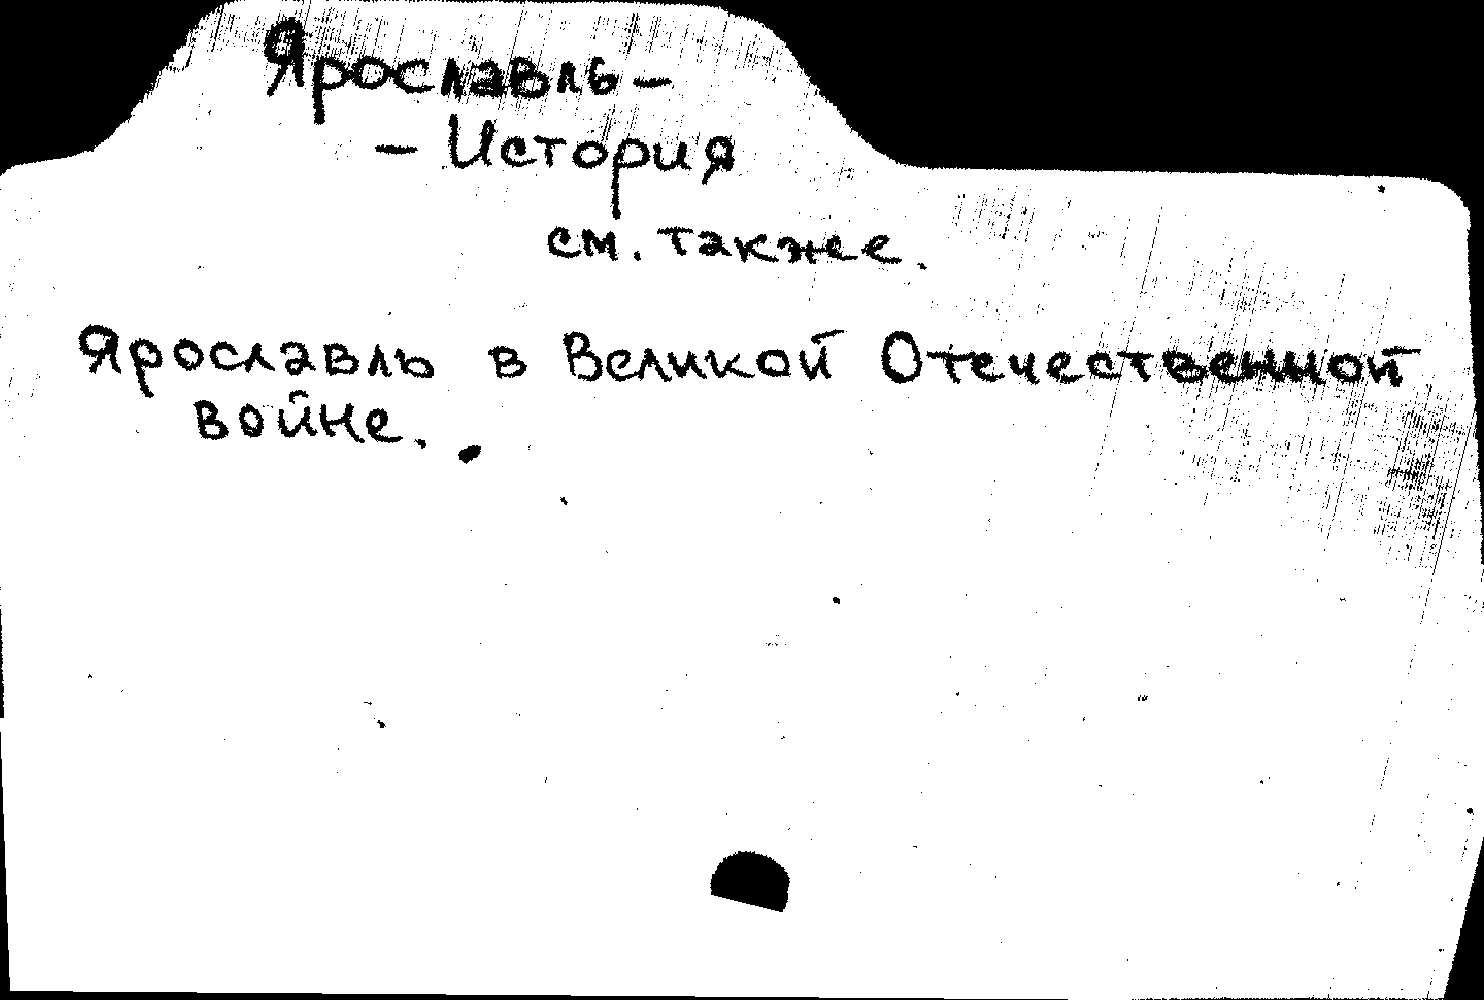 Ярославль –
– История
см. также.
Ярославль в Великой Отечественной
войне.